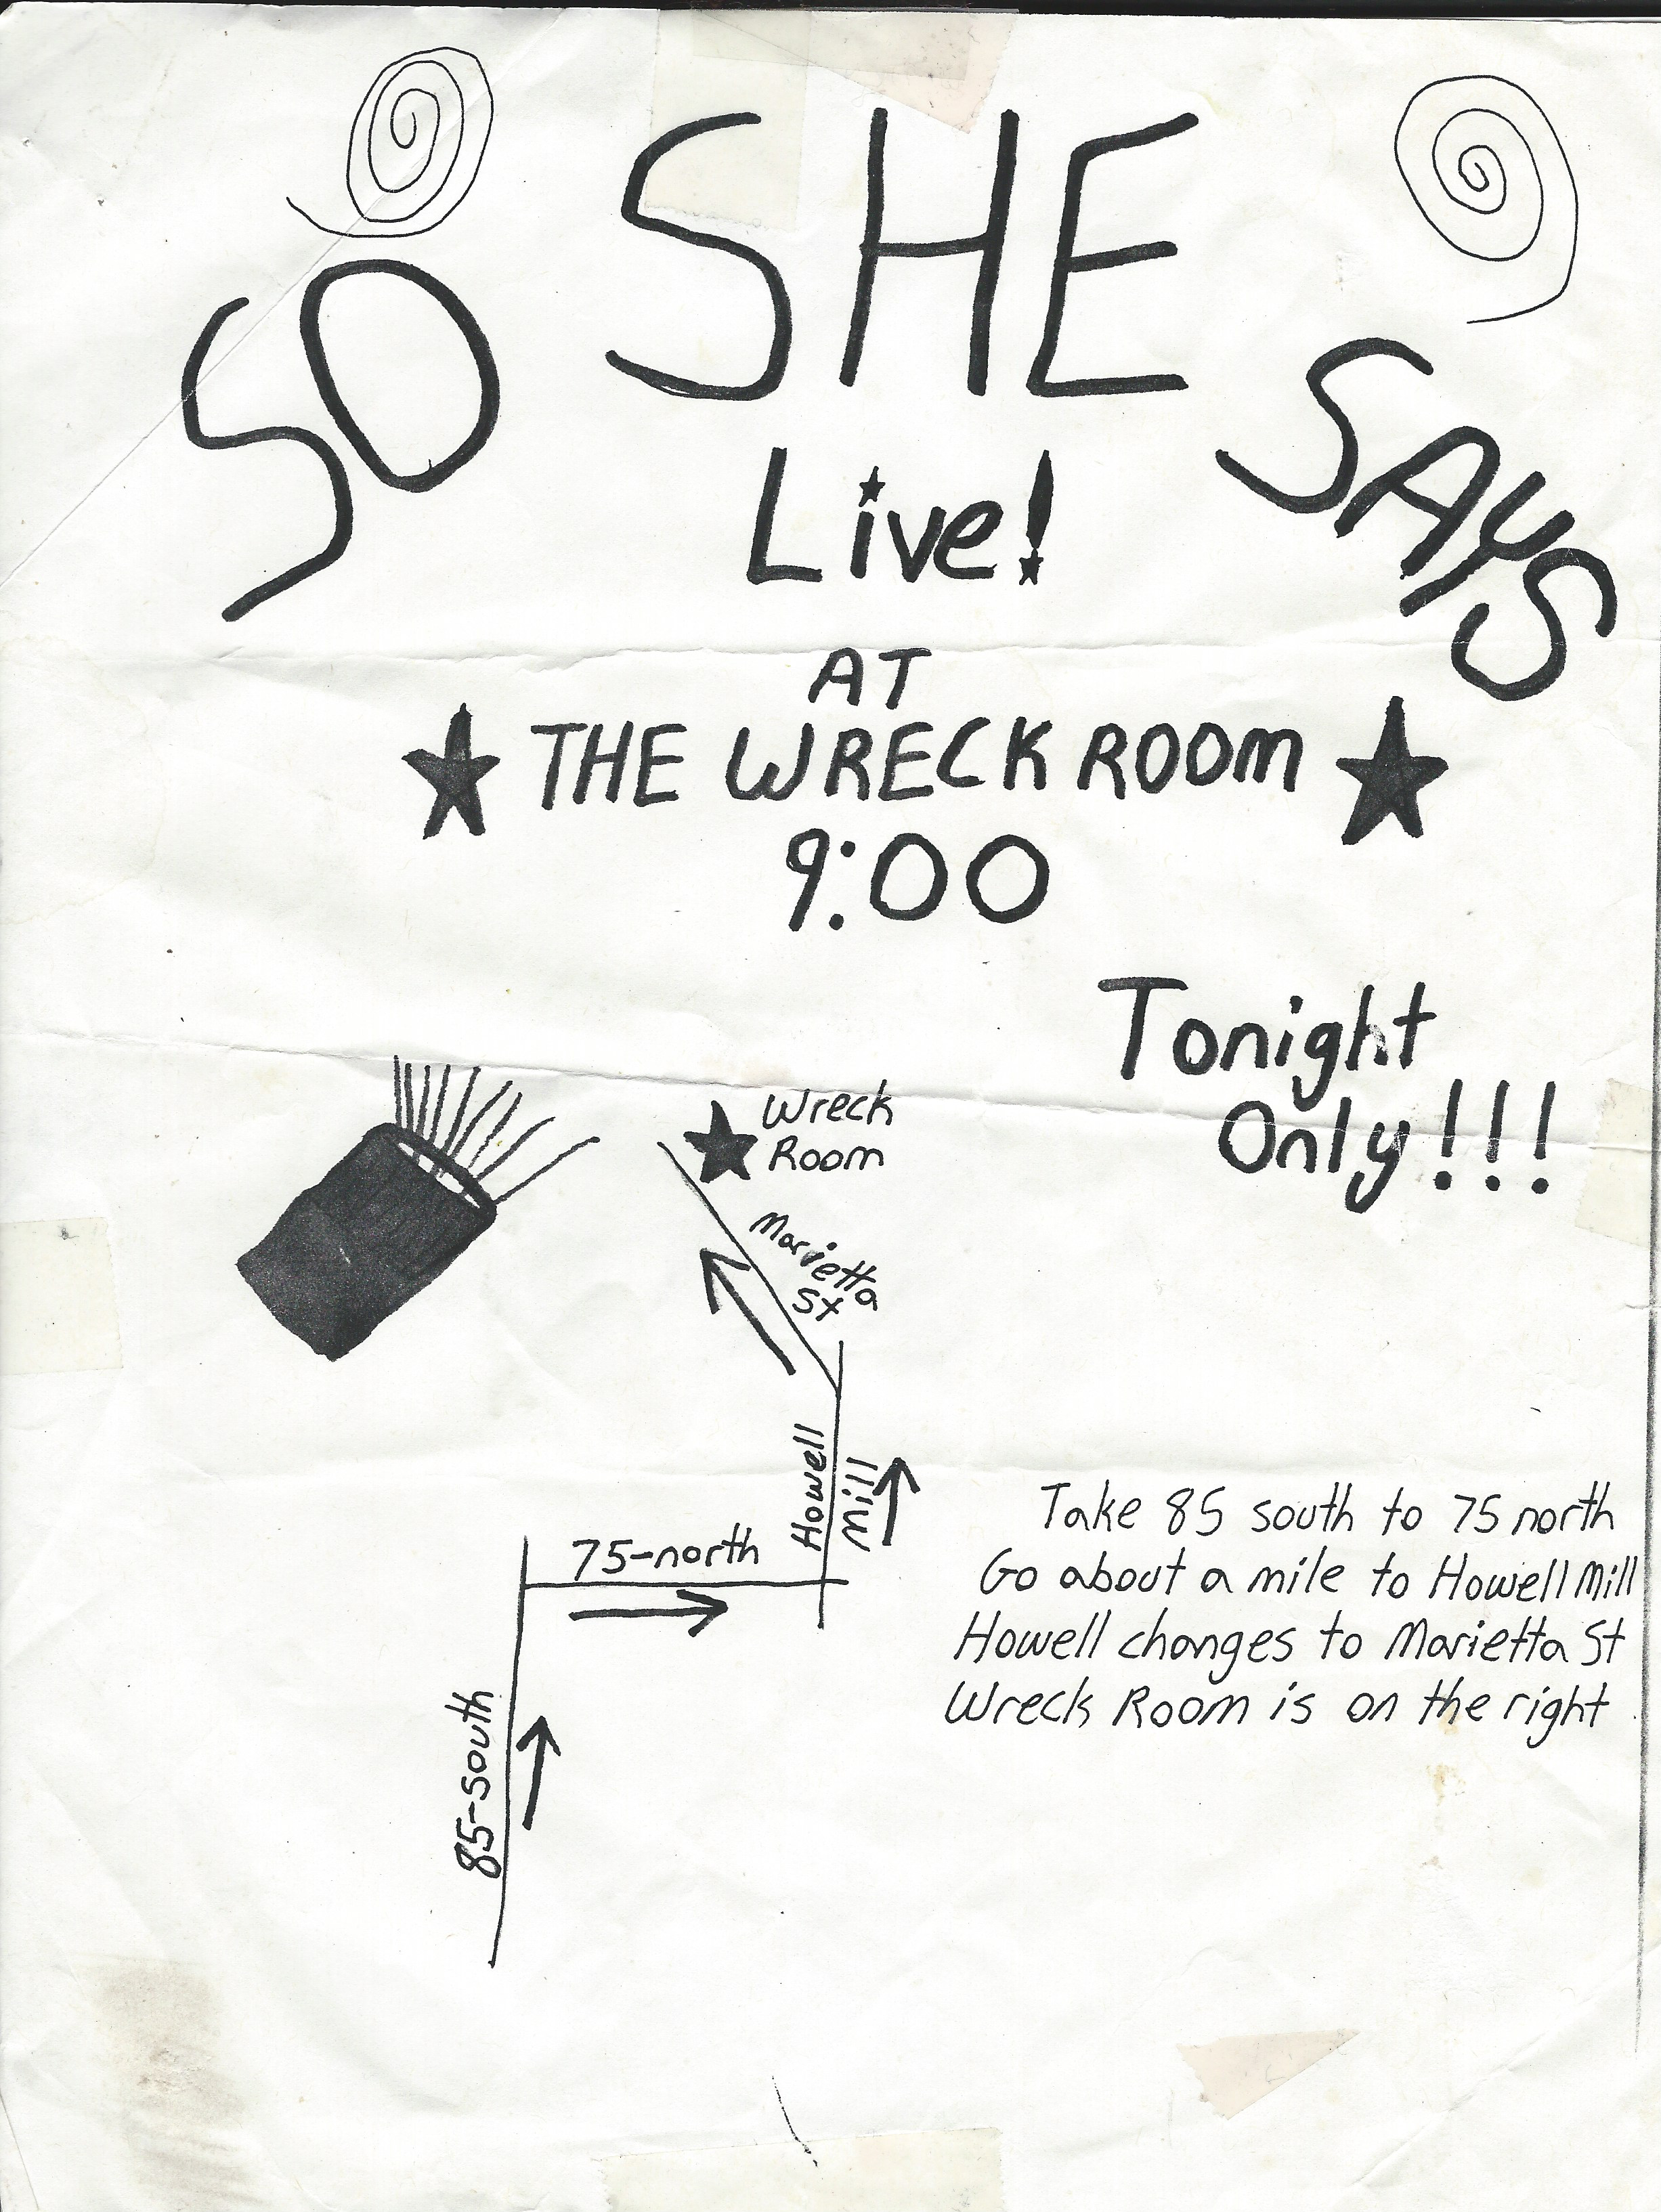 SO SHE SAYS
Live!
AT
THE WRECK ROOM
9:00
Tonight
Only!!!
Wreck
Room
Marietta
St
Howell
Mill
75-north
85-south
Take 85 south to 75 north
Go about a mile to Howell Mill
Howell changes to Marietta St
Wreck Room is on the right